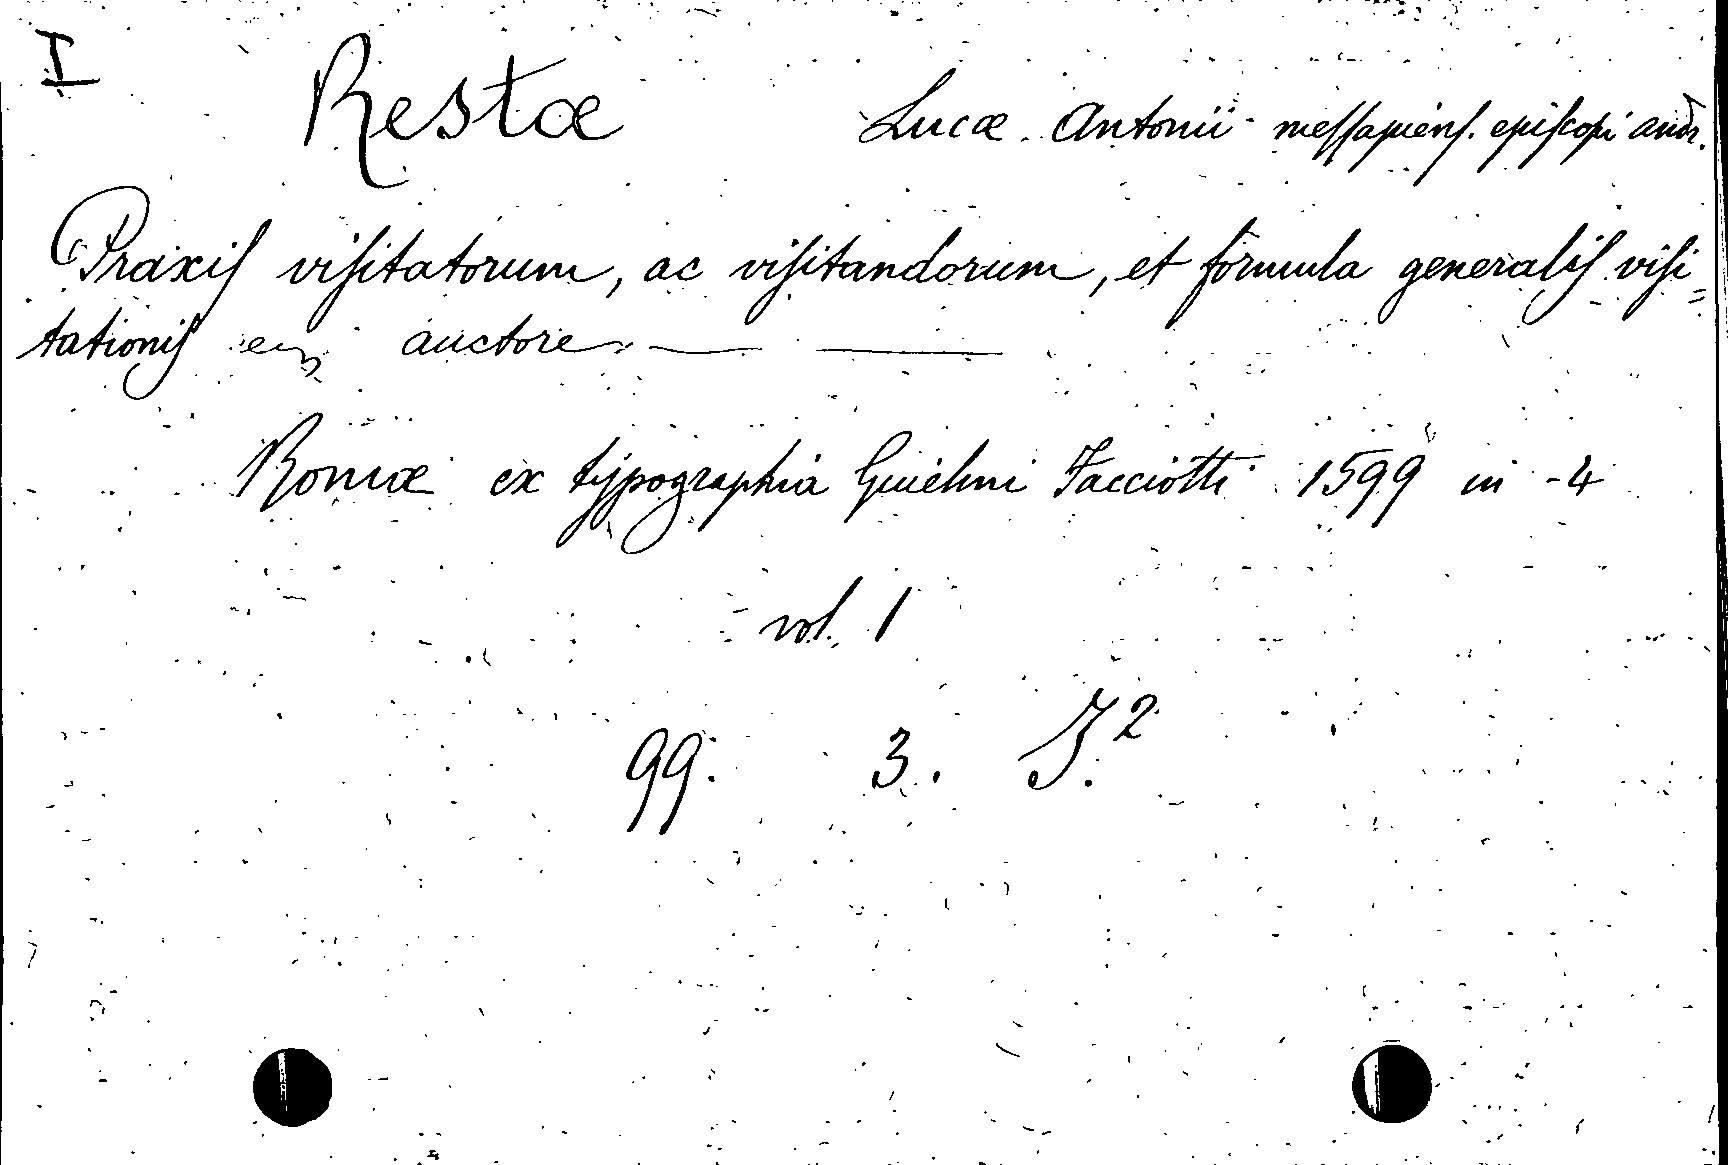 I
Restæ Lucæ Antonii messapiens. episcopi andr.
Praxis visitatorum, ac visitandorum, et formula generalis visi=
tationis auctore
Romæ ex typographia Guielmi Facciotti 1599 in-4
vol. 1
99. 3. I.2